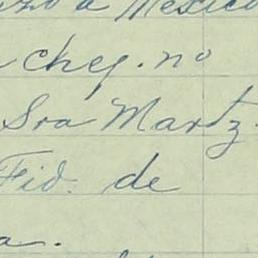 a Mexico
cheq. no
Sra Martz.
Fid. de
a.